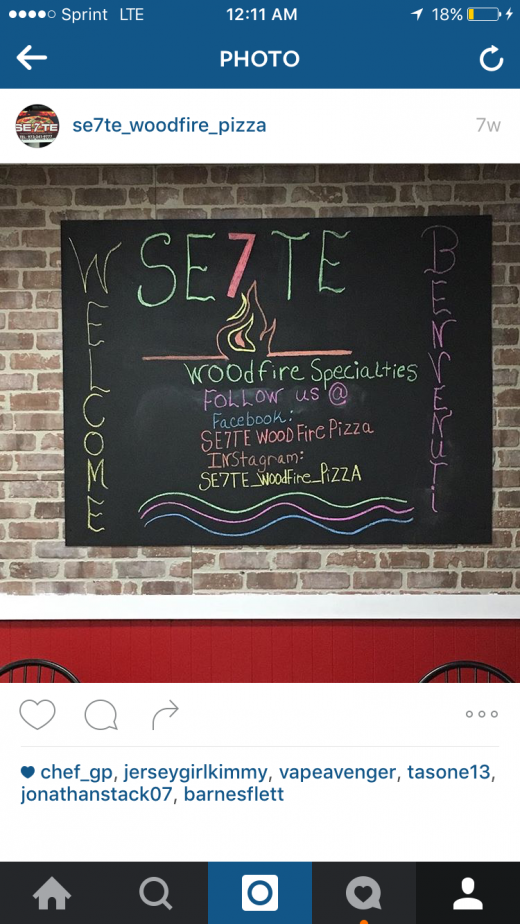 Sprint LTE 12:11 AM 18%
PHOTO
se7te_woodfire_pizza 7w
WELCOME
SE7TE
BENVENUTI
WOOdfire Specialties
FOLLOW us @
Facebook:
SE7TE WOOD Fire Pizza
INStagram:
SE7TE_WoodFire_PizzA
chef_gp, jerseygirlkimmy, vapeavenger, tasone13,
jonathanstack07, barnesflett